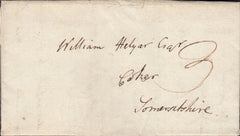 William Helyar Esqr
3
Coker
Somersetshire.